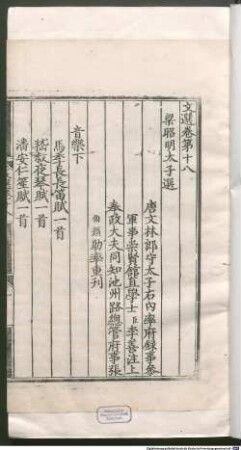 文選卷第十八
梁昭明太子選
唐文林郎守太子右內率府録事參
軍事崇賢館直學士臣李善注上
奉政大夫同知池州路總管府事張
伯顔助率重刊
音樂下
馬季長長笛賦一首
嵇叔夜琴賦一首
潘安仁笙賦一首